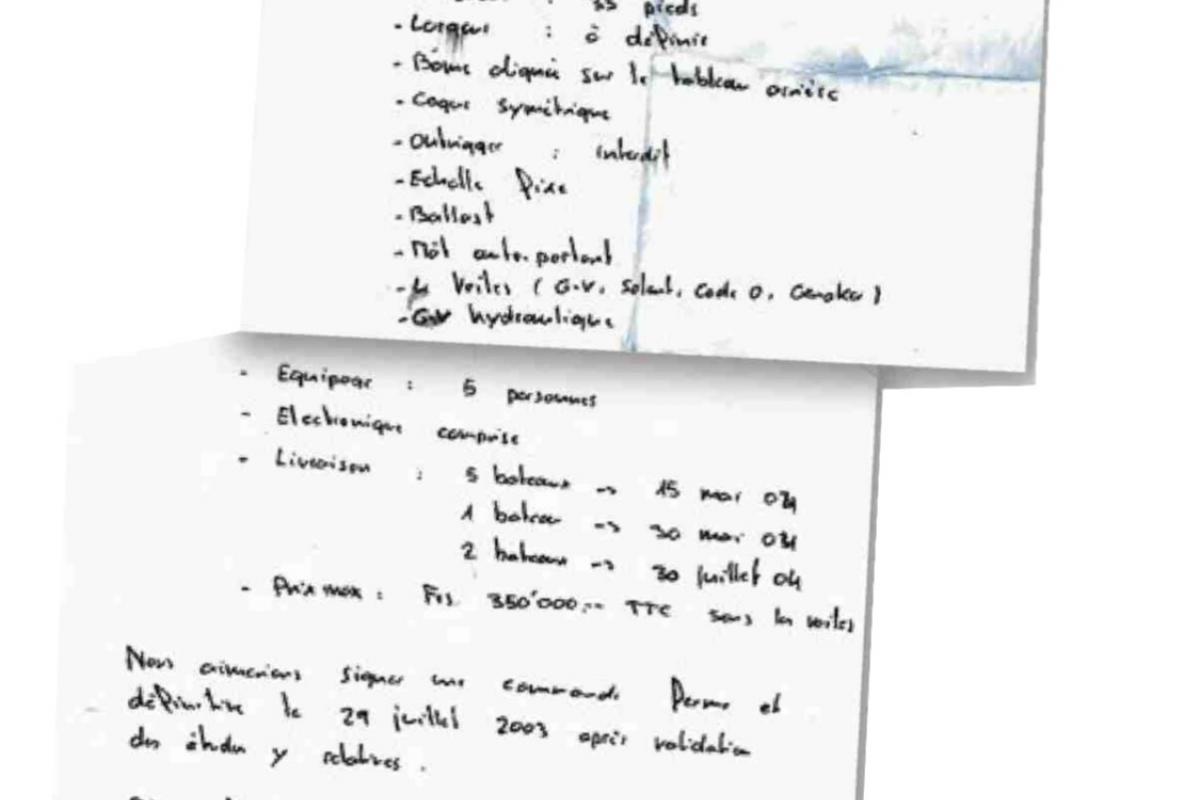 : 35 pieds
- Largeur : à définir
- Bôme alignée sur le tableau arrière
- Coque symétrique
- Outrigger : interdit
- Echelle fixe
- Ballast
- Mât auto-portant
- 4 Voiles ( G.V, Solent, Code 0, Genaker )
- G.V hydraulique
- Equipage : 5 personnes
- Electronique comprise
- Livraison : 5 bateaux -> 15 mai 04
1 bateau -> 30 mai 04
2 bateaux -> 30 juillet 04
- Prix max : Frs 350'000.-- TTC sans les voiles
Nous aimerions signer une commande ferme et
définitive le 29 juillet 2003 après validation
des études y relatives .